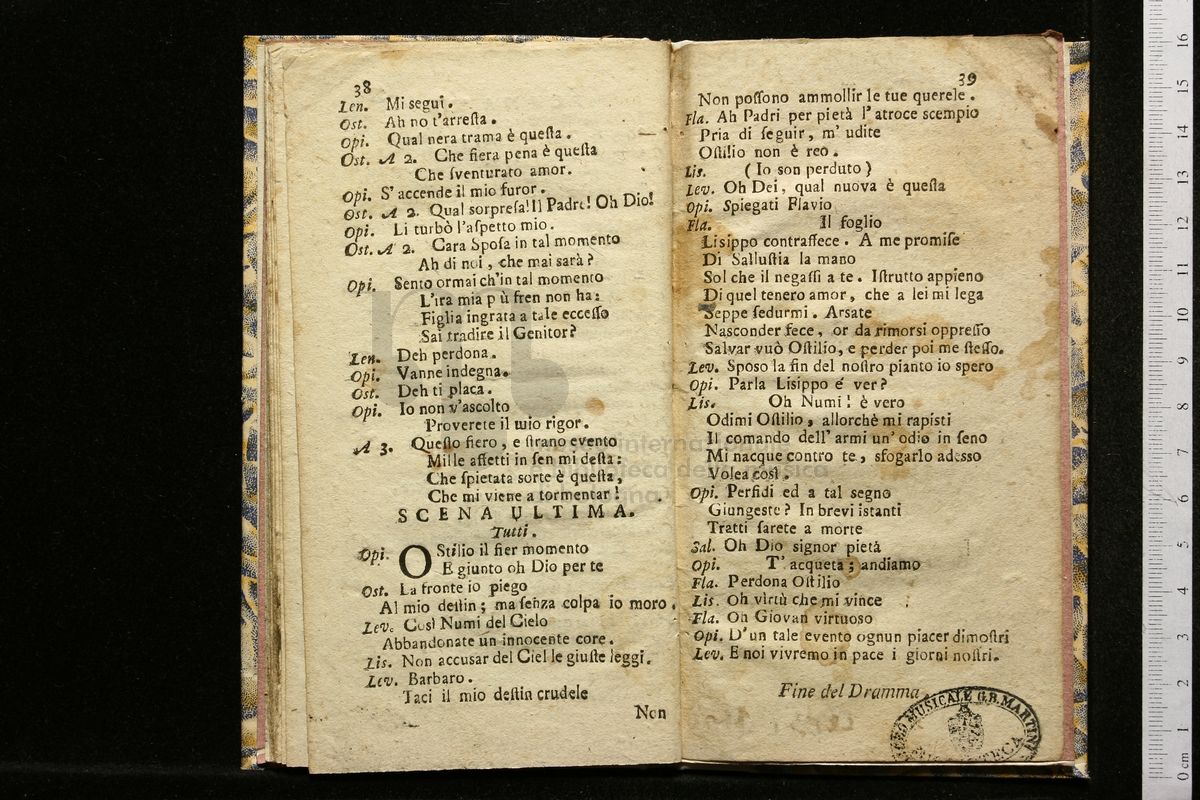 38
Len. Mi segui.
Ost. Ah no t'arreſta.
Opi. Qual nera trama è queſta.
Ost. A 2. Che fiera pena è queſta
Che ſventurato amor.
Opi. S'accende il mio furor.
Ost. A 2. Qual sorpreſa! Il Padre! Oh Dio!
Opi. Li turbò l'aſpetto mio.
Ost. A 2. Cara Spoſa in tal momento
Ah di noi, che mai sarà?
Opi. Sento ormai ch'in tal momento
L'ira mia p ù fren non ha:
Figlia ingrata a tale ecceſſo
Sai tradire il Genitor?
Len. Deh perdona.
Opi. Vanne indegna.
Ost. Deh ti placa.
Opi. Io non v'ascolto
Proverete il mio rigor.
A 3. Queſto fiero, e ſtrano evento
Mille affetti in ſen mi deſta:
Che ſpietata sorte è queſta,
Che mi viene a tormentar!
SCENA ULTIMA.
Tutti.
Opi. OStilio il fier momento
E giunto oh Dio per te
Ost. La fronte io piego
Al mio deſtin; ma ſenza colpa io moro.
Lev. Così Numi del Cielo
Abbandonate un innocente core.
Lis. Non accusar del Ciel le giuſte leggi.
Lev. Barbaro.
Taci il mio deſtin crudele
Non
39
Non poſſono ammollir le tue querele.
Fla. Ah Padri per pietà l'atroce scempio
Pria di ſeguir, m' udite
Oſtilio non è reo.
Lis. (Io son perduto)
Lev. Oh Dei, qual nuova è queſta
Opi. Spiegati Flavio
Fla. Il foglio
Lisippo contraffece. A me promiſe
Di Salluſtia la mano
Sol che il negaſſi a te. Iſtrutto appieno
Di quel tenero amor, che a lei mi lega
Seppe ſedurmi. Arsate
Nasconder fece, or da rimorsi oppreſſo
Salvar vuò Oſtilio, e perder poi me ſteſſo.
Lev. Sposo la fin del noſtro pianto io spero
Opi. Parla Lisippo é ver?
Lis. Oh Numi! è vero
Odimi Oſtilio, allorchè mi rapiſti
Il comando dell' armi un' odio in ſeno
Mi nacque contro te, sfogarlo adesso
Volea così.
Opi. Perfidi ed a tal segno
Giungeste? In brevi istanti
Tratti ſarete a morte
Sal. Oh Dio signor pietà
Opi. T' acqueta; andiamo
Fla. Perdona Oſtilio
Lis. Oh virtù che mi vince
Fla. Oh Giovan virtuoso
Opi. D'un tale evento ognun piacer dimoſtri
Lev. E noi vivremo in pace i giorni noſtri.
Fine del Dramma.
MUSICALE G.B. MARTINI